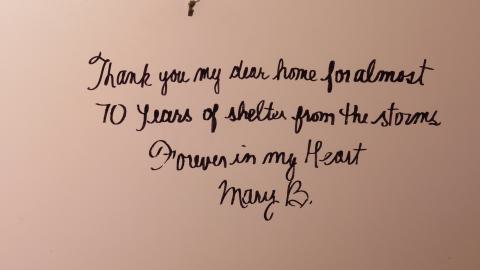 Thank you my dear home for almost
70 years of shelter from the storms
Forever in my Heart
Mary B.